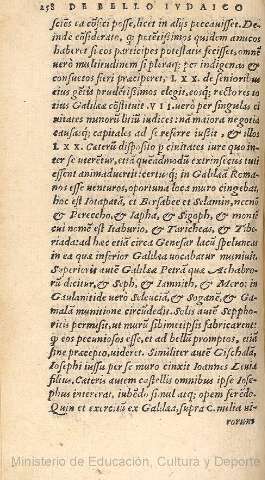 258 DE BELLO IVDAICO
sciēs ea cōsici posse, licet in alijs peccauisset. De-
inde cōsiderate, ꝙ potētissimos quidem amicos
haberet si eos participes potestatis fecisset, omnē
vero multitudinem si pleraq; per indigenas &
consuetos fieri praeciperet, LXX. de senioribus
eius gētis prudētissimos elegit, eosq; rectores to-
tius Galileae cōstituit. VII. vero per singulas ci
uitates minorū litiū iudices: nā maiora negotia
causasq; capitales ad se referre iussit, & illos
LXX. Caterū dispositio ꝑ ciuitates iure quo in-
ter se vterētur, etiā quēadmodū extrinsecus tuti
essent animaduertit: certusq; in Galileā Roma-
nos esse venturos, oportuna loca muro cingebat,
hoc est Iotapatā, et Bersabee et Selamin, necnō
& Perecho, & Iapha, & Sigoph, & montē
cui nomē est Itaburio, & Taricheas, & Tibe-
riada: ad haec etiā circa Genesar lacū speluncas
in ea quae inferior Galilaea vocabatur muniuit.
Superioris autē Galileae Petrā quae Achabro-
rū dicitur, & Seph, & Iamnith, & Mero: in
Gaulanitide vero Seleuciā, & Soganē, & Ga-
malā munitione circūdedit. Solis autē Seppho-
ritis permisit, vt murū sibimetipsis fabricarent:
ꝙ eos pecuniosos esse, et ad bellū promptos, etiā
sine praecepto, videret. Similiter autē Gischalā,
Iosephi iussu, per se muro cinxit Ioannes Leuiae
filius. Cateris autem castellis omnibus ipse Iose-
phus intererat, iubēdo simul atq; opem ferēdo.
Quin et exercitū ex Galilaea, supra C. milia vi-
rorum
Ministerio de Educación, Cultura y Deporte